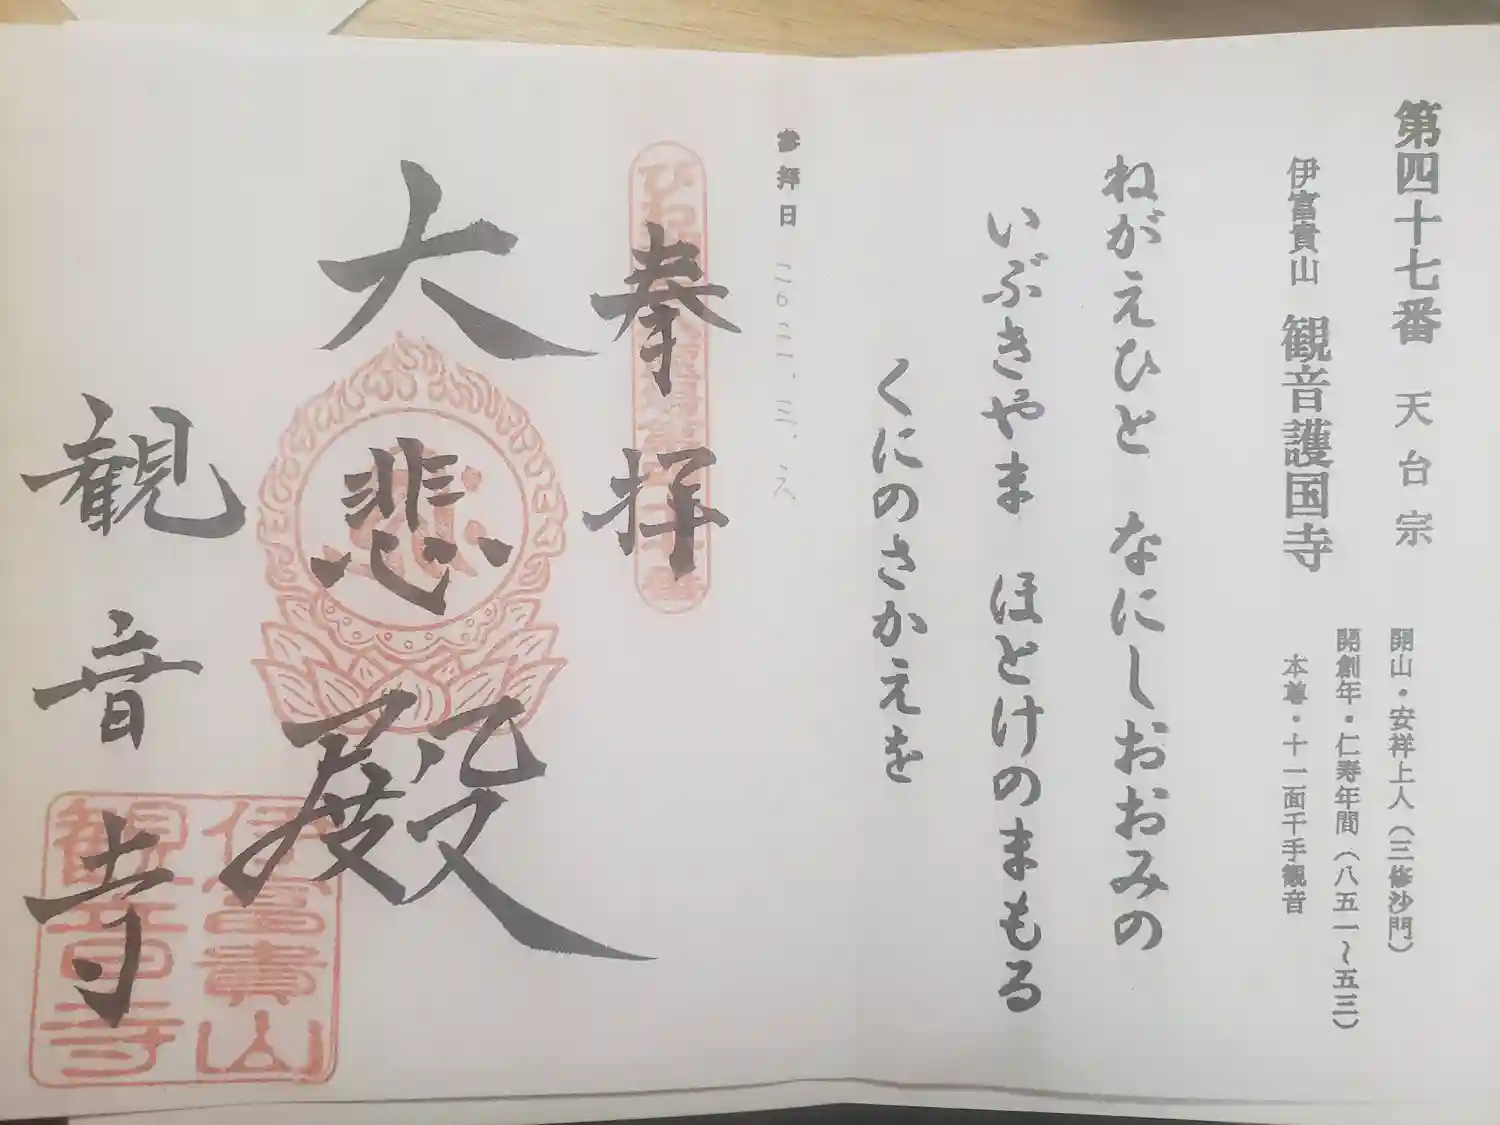 第四十七番 天台宗
開山・安祥上人(三修沙門)
開創年・仁寿年間(八五一〜五三)
伊富貴山 観音護国寺
本尊・十一面千手観音
ねがえひと なにしおおみの
いぶきやま ほとけのまもる
くにのさかえを
参拝日
奉拝
大悲殿
観音寺
伊富貴山
観音寺